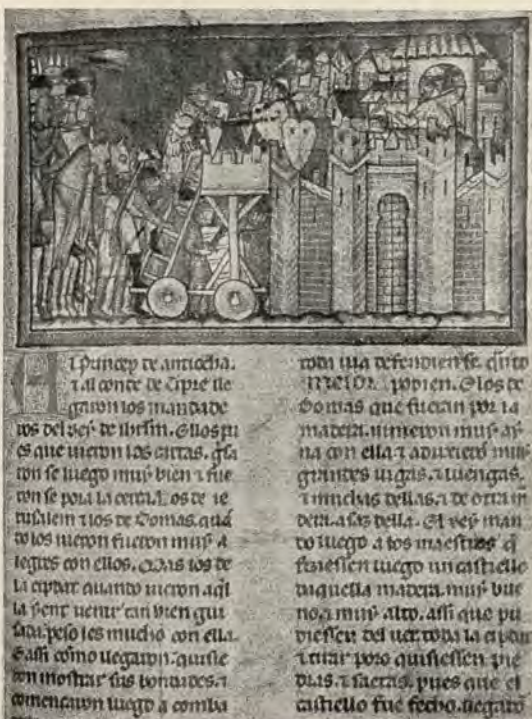 Al princep de antiocha.
τ al conte de Cipre lle
garon los mandade
ros del Rey de ihrlm. Ellos pu
es que uieron las cartas. gisa
ron se luego muy bien τ fue
ron se pora la cerca. Los de ie
rusalem τ los de Domas. quã
do los uieron fueron muy a
legres con ellos. Mas los de
la cipdat quando uieron aq̃l
la yent uenir tan bien gui
sada. peso les mucho con ella.
E assi como llegaron. quisie
ron mostrar sus bondades. τ
començaron luego a comba
toda uia defendien se. quãto
meior podien. E los de
Domas que fueran por la
madera. uinieron muy ay
na con ella τ aduxieron muy
grandes uigas. τ luengas.
τ muchas dellas. τ de otra ma
dera. asaz della. El Rey man
do luego a los maestros q̃
fiziessen luego un castiello
daquella madera. muy bue
no. τ muy alto. assi que pu
diessen del uer toda la cipdat
τ tirar poro quisiessen pie
dras. τ saetas. pues que el
castiello fue fecho. llegarõ